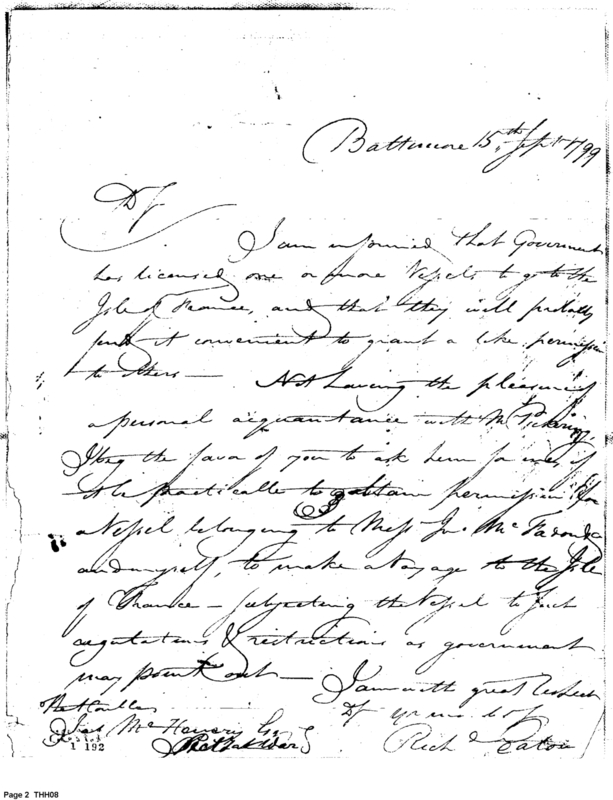 Baltimore 15th Sept 1799
Dr Sr
I am informed that Government
has licensed one or more Vessels to go to the
Isle of France, and that they will probably
find it convenient to grant a like permission
to others — Not having the pleasure of
a personal acquaintance with Mr Pickering,
I beg the favor of you to ask him for me, if
it be practicable to obtain permission for
a Vessel belonging to Mess Jno McFadon & Co
and myself, to make a Voyage to the Isle
of France — subjecting the Vessel to such
regulations & restrictions as government
may point out —
I am with great Respect
Dr Sr yours
Rich d Caton
The Honble
Jas McHenry Esq
1 192
Page 2 THH08